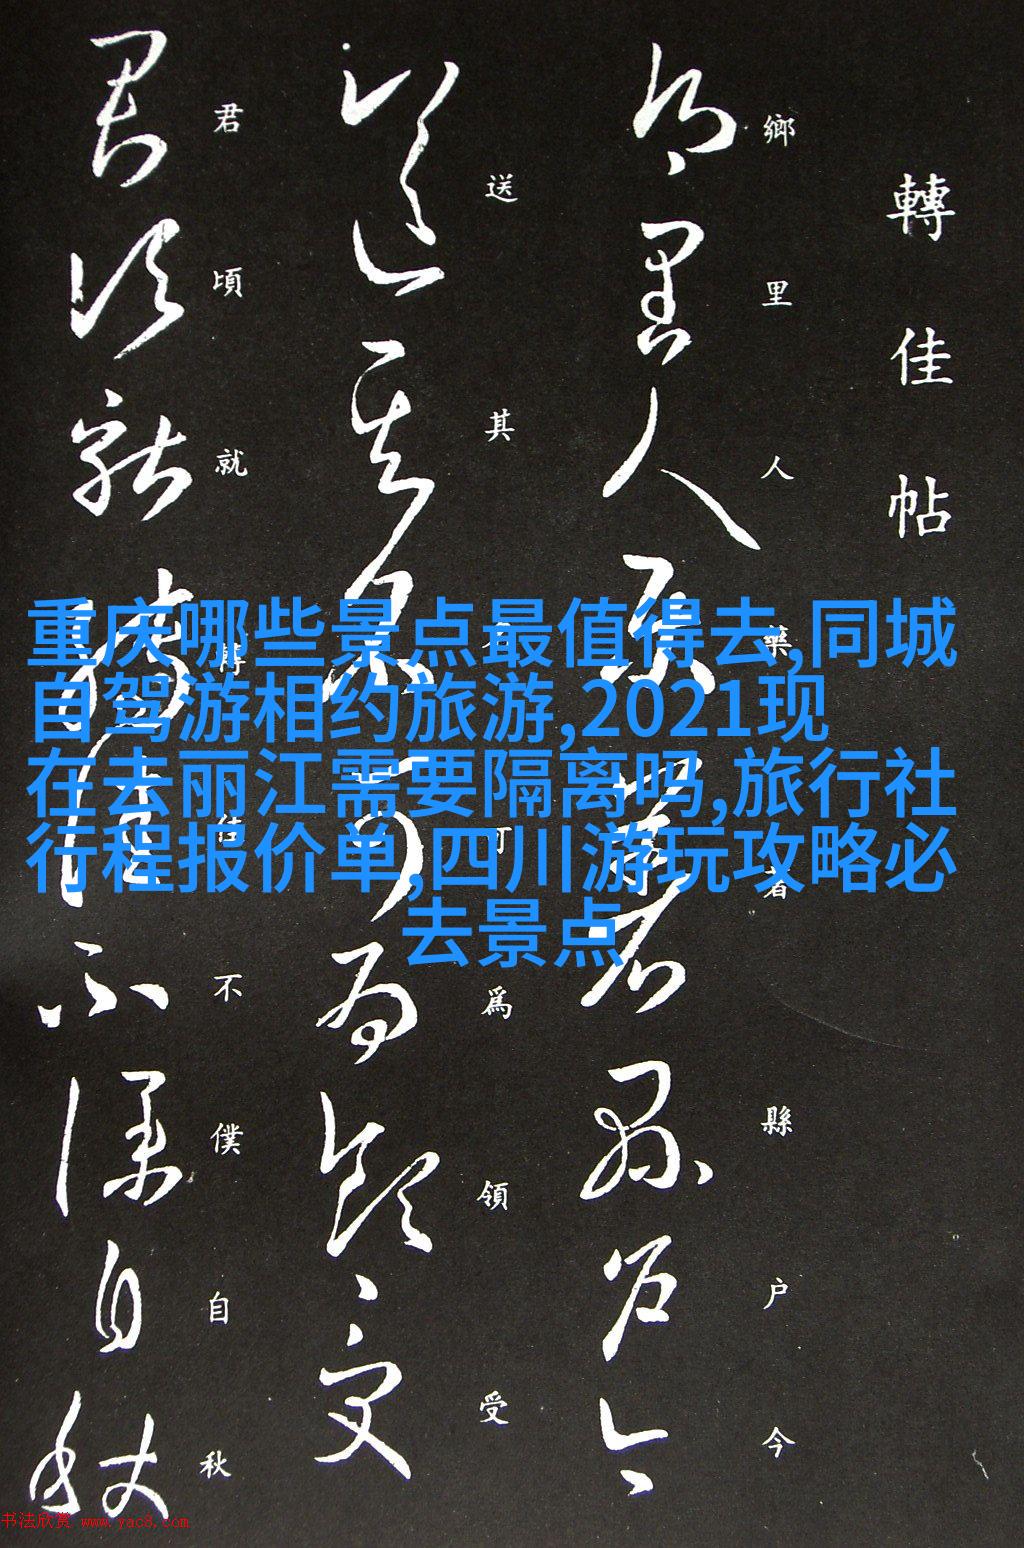 轉佳帖
鄉里人藥者縣户今
送其可為領受
君頃就佳不僕自秋
重庆哪些景点最值得去,同城
自驾游相约旅游,2021现
在去丽江需要隔离吗,旅行社
行程报价单,四川游玩攻略必
去景点
书法欣赏 www.yac8.com